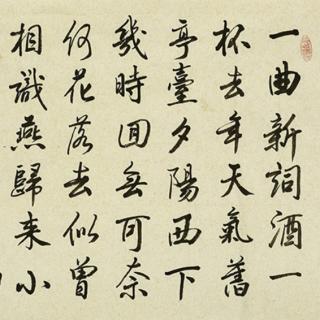 一曲新詞酒一
杯去年天氣舊
亭臺夕陽西下
幾時回無可奈
何花落去似曾
相識燕歸来小